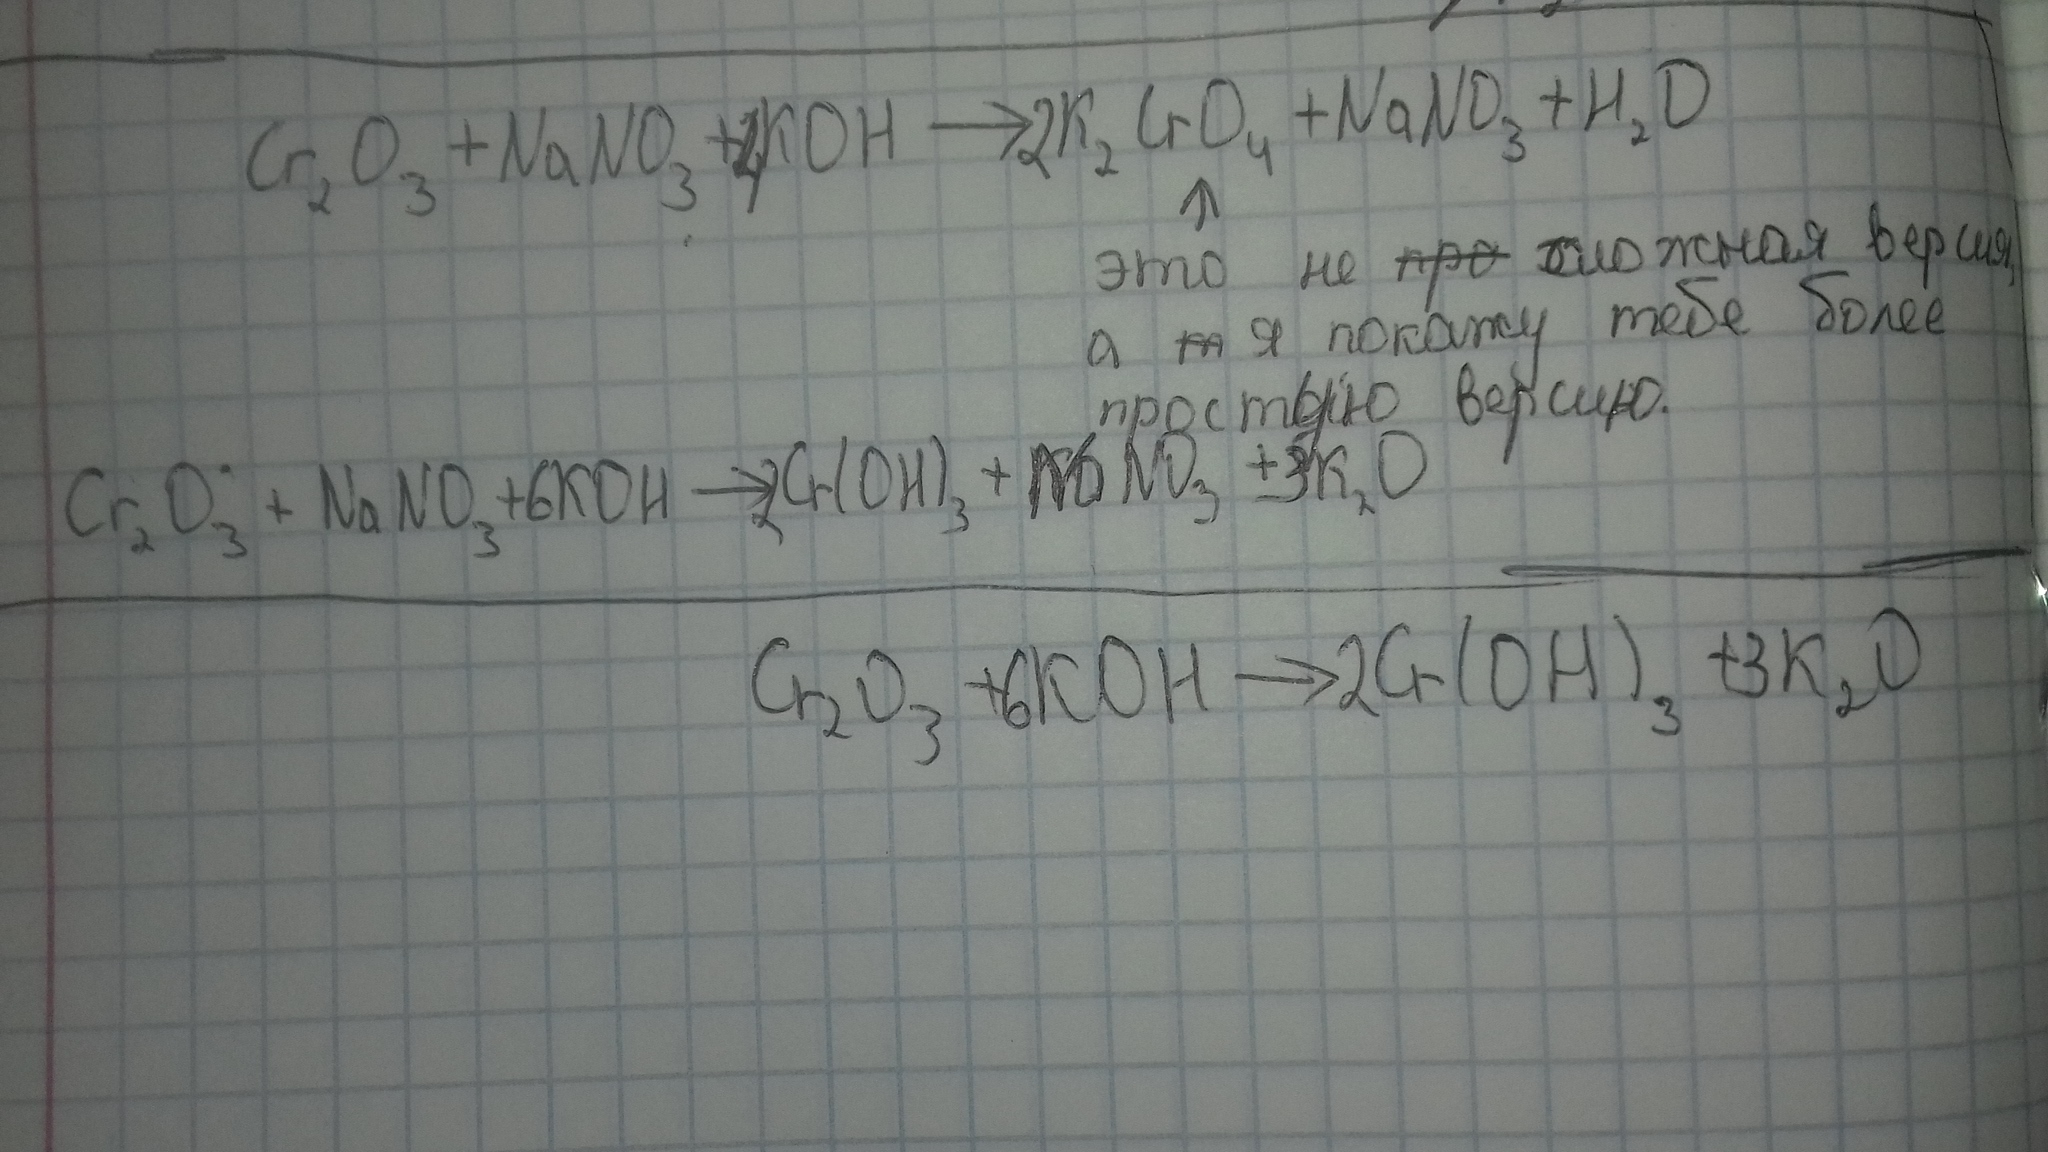 Cr₂O₃ + NaNO₃ + 4KOH → 2K₂CrO₄ + NaNO₃ + H₂O
↑
это не про сложная версия,
а т я покажу тебе более
простую версию.
Cr₂O₃ + NaNO₃ + 6KOH → 2Cr(OH)₃ + NaNO₃ + 3K₂O
Cr₂O₃ + 6KOH → 2Cr(OH)₃ + 3K₂O